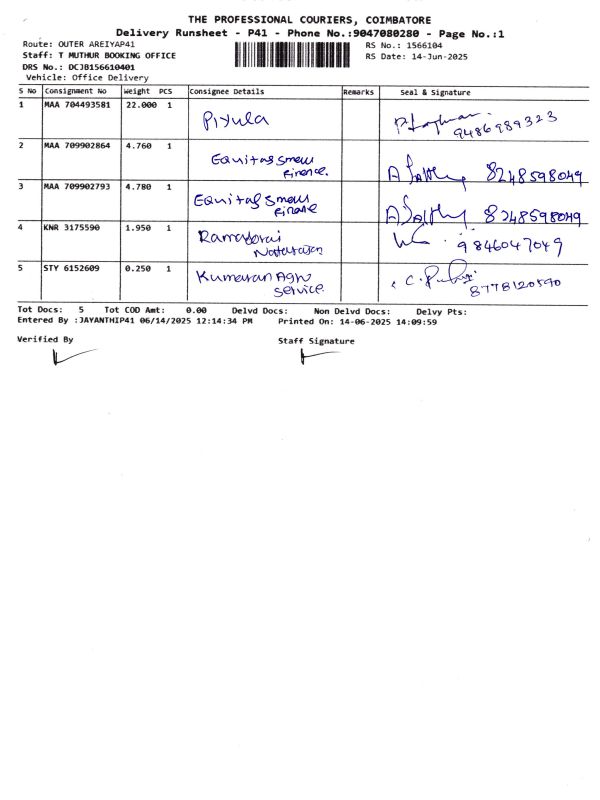 THE PROFESSIONAL COURIERS, COIMBATORE
Delivery Runsheet - P41 - Phone No.:9047080280 - Page No.:1
Route: OUTER AREIYAP41
RS No.: 1566104
Staff: T MUTHUR BOOKING OFFICE
RS Date: 14-Jun-2025
DRS No.: DCJB156610401
Vehicle: Office Delivery
S No Consignment No Weight PCS Consignee Details Remarks Seal & Signature
1 MAA 704493581 22.000 1 Piyula
9486989323
2 MAA 709902864 4.760 1 Equitas Small
Finance. 8248598049
3 MAA 709902793 4.780 1 Equitas Small
Finance 8248598049
4 KNR 3175590 1.950 1 9846047049
Natarajan
5 STY 6152609 0.250 1 Kumaran Agro
Service. 8778120590
Tot Docs: 5 Tot COD Amt: 0.00 Delvd Docs: Non Delvd Docs: Delvy Pts:
Entered By :JAYANTHIP41 06/14/2025 12:14:34 PM Printed On: 14-06-2025 14:09:59
Verified By Staff Signature